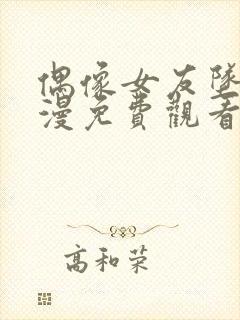 偶像女友墜
漫免費觀看
高和荣